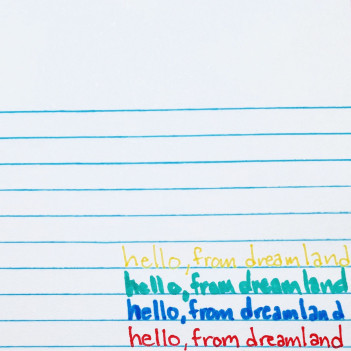 hello, from dreamland
hello, from dreamland
hello, from dreamland
hello, from dreamland